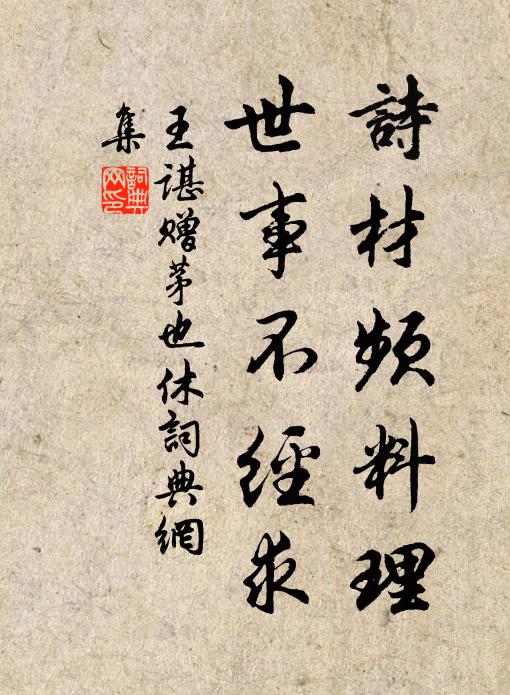 詩材頻料理
世事不經求
王諶赠茅也休詞典網
集
詞典
网印